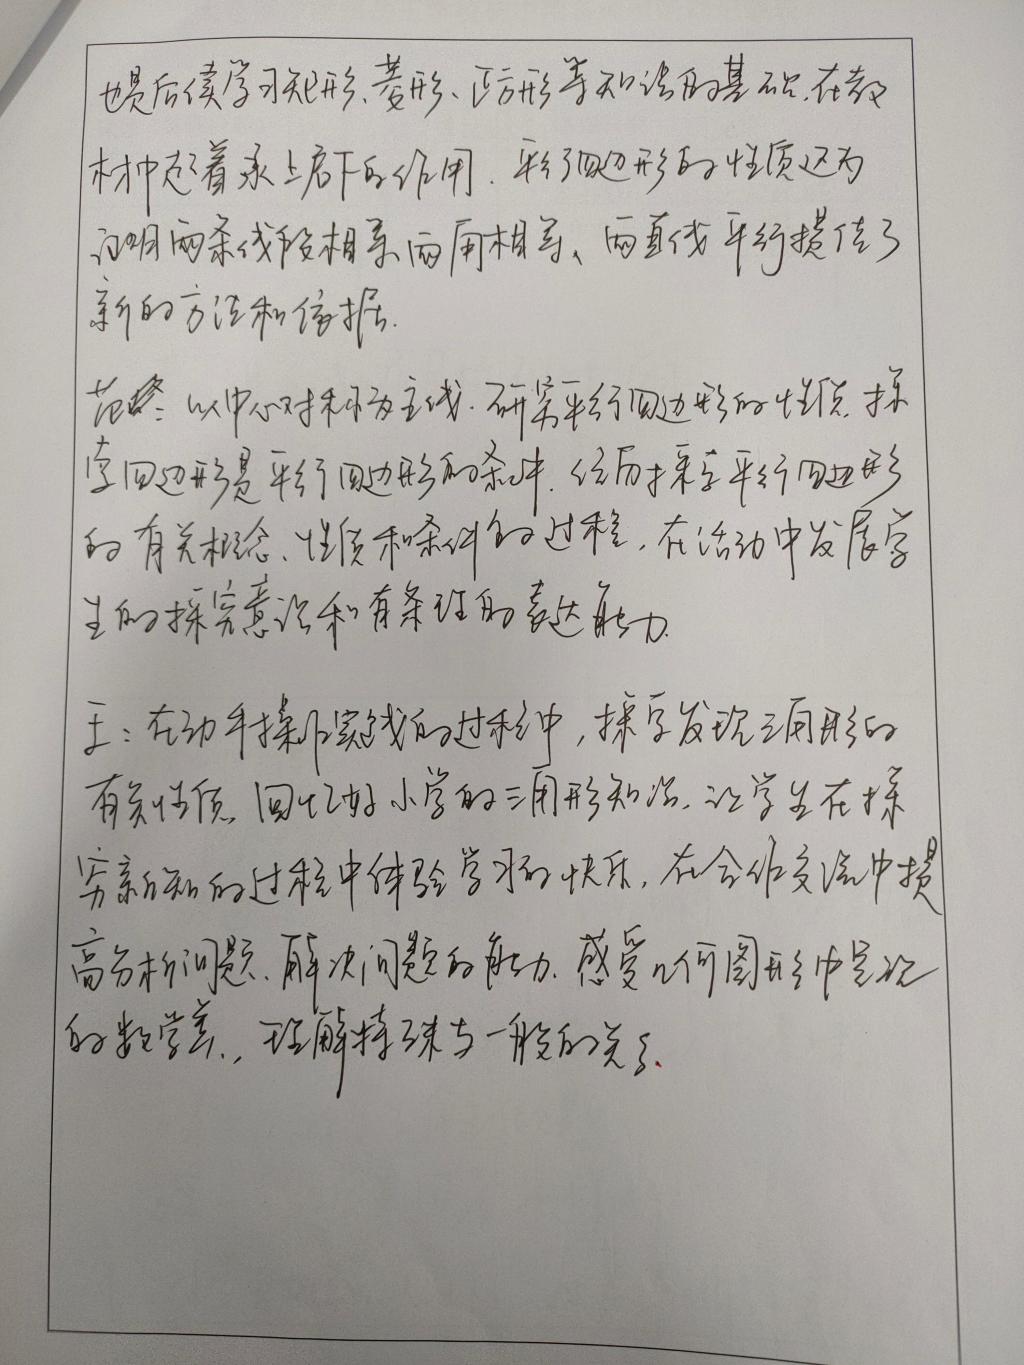 也是后续学习矩形、菱形、正方形等知识的基础.在教
材中起着承上启下的作用.平行四边形的性质还为
证明两条线段相等、两角相等、两直线平行提供了
新的方法和依据.
范：以中心对称为主线.研究平行四边形的性质.探
索四边形是平行四边形的条件.经历探索平行四边形
的有关概念、性质和条件的过程,在活动中发展学
生的探究意识和有条理的表达能力.
王：在动手操作实践的过程中,探索发现三角形的
有关性质.回忆好小学的三角形知识.让学生在探
究新知的过程中体验学习的快乐,在合作交流中提
高分析问题.解决问题的能力.感受几何图形中呈现
的数学美.,理解特殊与一般的关系.